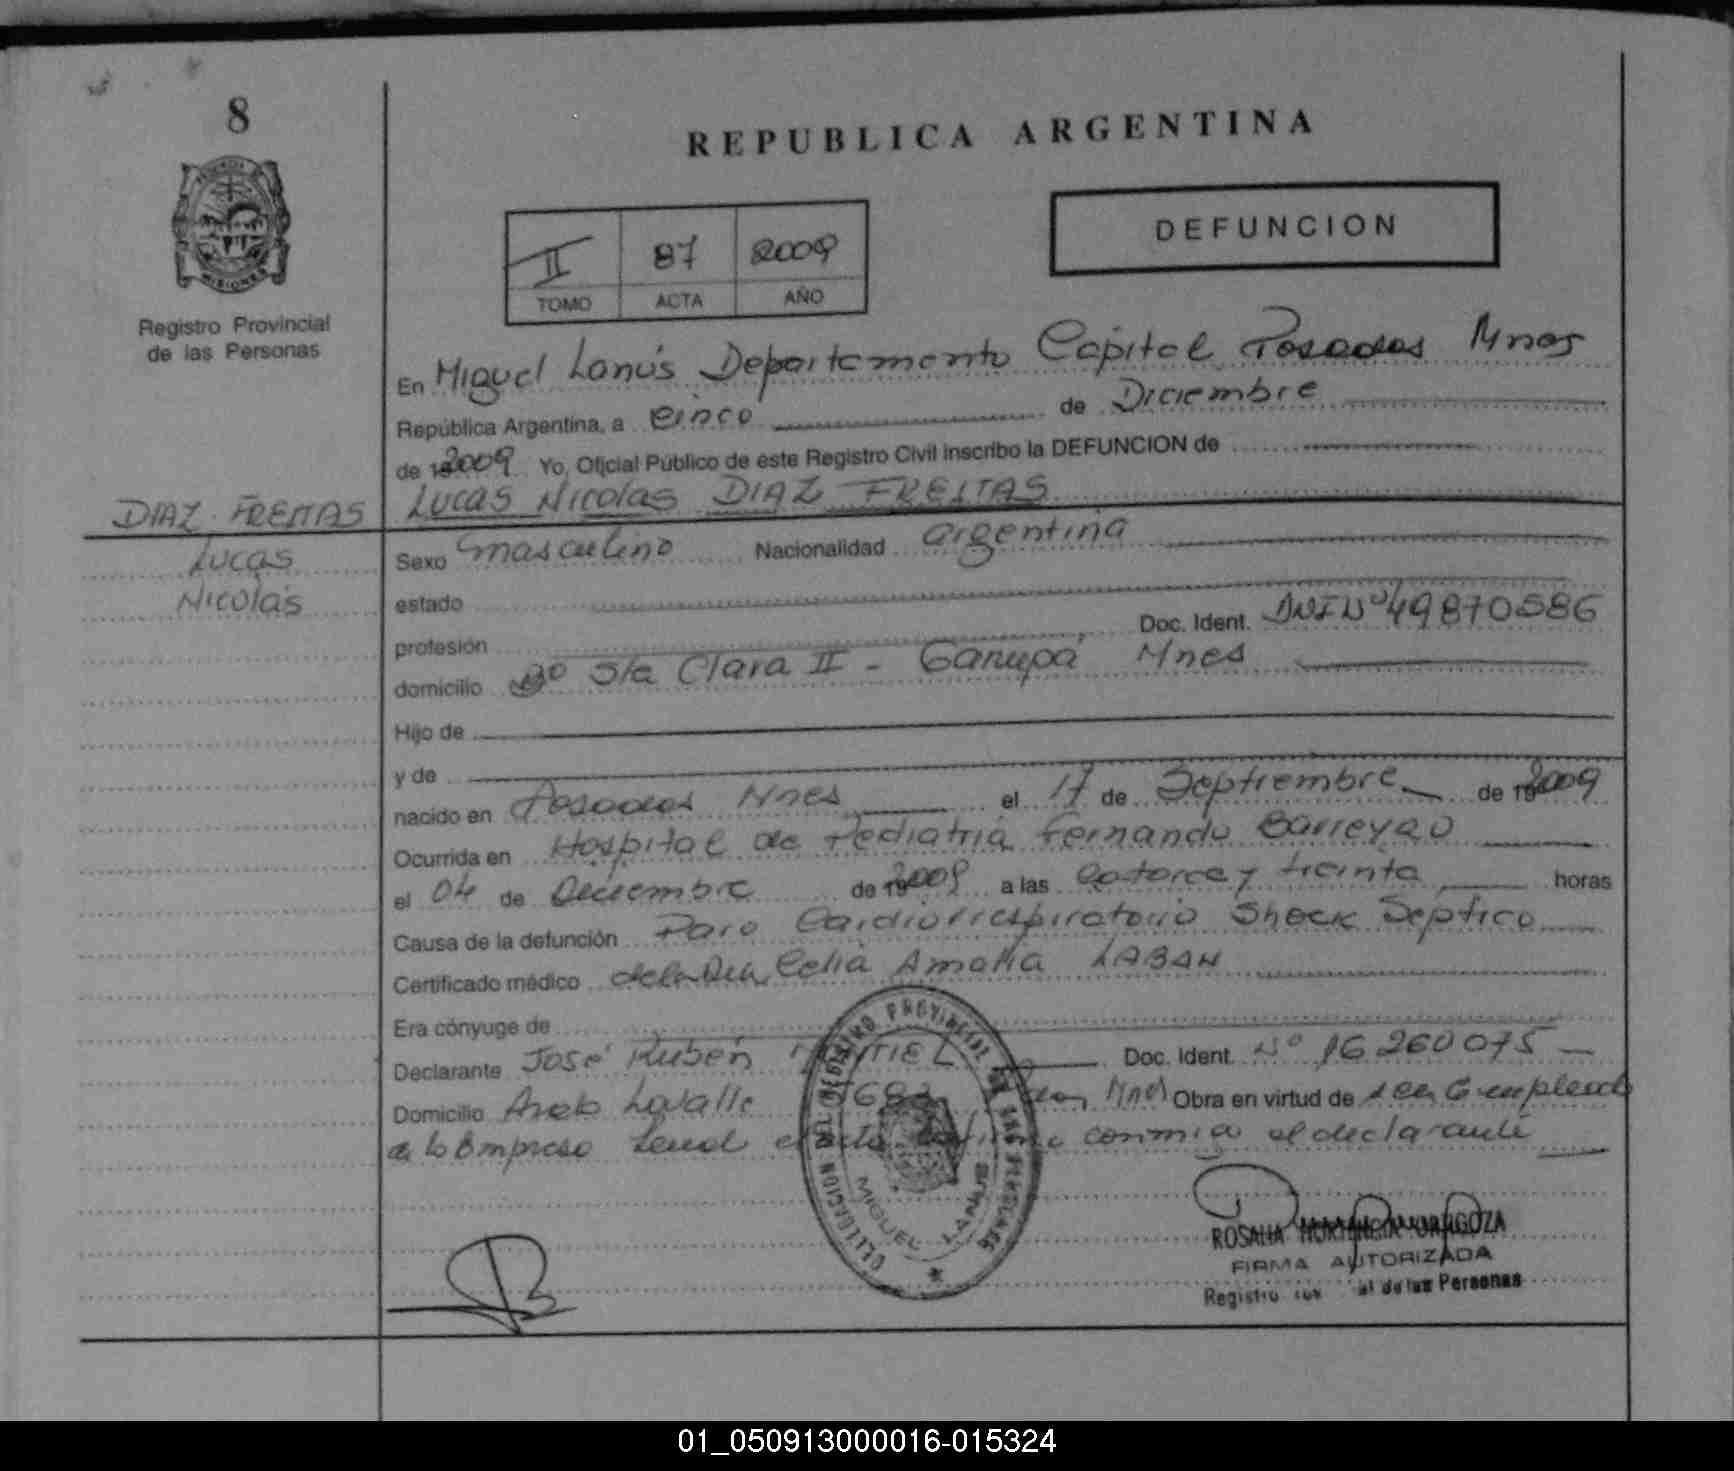 8
REPUBLICA ARGENTINA
DEFUNCION
II 87 2009
TOMO ACTA AÑO
Registro Provincial
de las Personas
En Miguel Lanús Departamento Capital Posadas Mnes
República Argentina, a cinco de Diciembre
de 2009 Yo, Oficial Público de este Registro Civil inscribo la DEFUNCION de
DIAZ FREITAS Lucas Nicolas DIAZ FREITAS
Lucas
Nicolás
Sexo masculino Nacionalidad argentina
estado
profesión Doc. Ident. DNI Nº 49870586
domicilio Bº Sta Clara II - Garupá Mnes
Hijo de
y de
nacido en Posadas Mnes el 17 de Septiembre de 2009
Ocurrida en Hospital de Pediatria Fernando Barreyro
el 04 de Diciembre de 2009 a las Catorce y treinta horas
Causa de la defunción Paro Cardiorrespiratorio Shock Septico
Certificado médico de la Dra Celia Amalia LABAN
Era cónyuge de
Declarante José Rubén Doc. Ident. Nº 16260075
Domicilio Lavalle Mnes Obra en virtud de ser Empleado
de la Empresa el declarante
DELEGACION DEL REGISTRO PROVINCIAL DE LAS PERSONAS
MIGUEL LANUS
ROSALIA HORTENCIA
FIRMA AUTORIZADA
Registro de las Personas
01_050913000016-015324